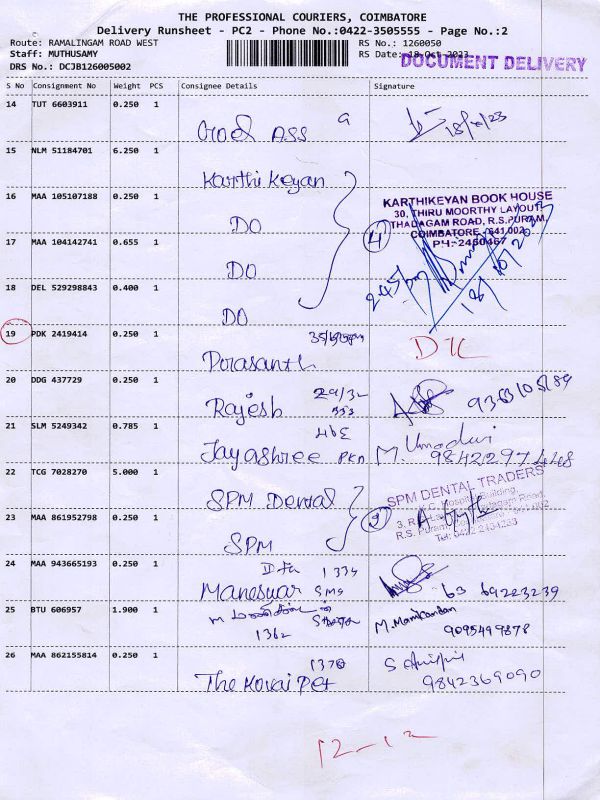 THE PROFESSIONAL COURIERS, COIMBATORE
Delivery Runsheet - PC2 - Phone No.:0422-3505555 - Page No.:2
Route: RAMALINGAM ROAD WEST RS No.: 1260050
Staff: MUTHUSAMY RS Date: 18-Oct-2023
DRS No.: DCJB126005002 DOCUMENT DELIVERY
S No Consignment No Weight PCS Consignee Details Signature
14 TUT 6603911 0.250 1
ASS 18/10/23
15 NLM 51184701 6.250 1
Karthikeyan
16 MAA 105107188 0.250 1
DO
KARTHIKEYAN BOOK HOUSE
30, THIRU MOORTHY LAYOUT,
THADAGAM ROAD, R.S.PURAM,
COIMBATORE - 641 002
PH: 2460467
4
17 MAA 104142741 0.655 1
DO
18/10/2023
18 DEL 529298843 0.400 1
DO
19 PDK 2419414 0.250 1
Prasanth
20 DDG 437729 0.250 1
29/32
Rajesh
21 SLM 5249342 0.785 1
Jayashree M. Umadevi
9842297448
22 TCG 7028270 5.000 1
SPM Dental
SPM DENTAL TRADERS
2
23 MAA 861952798 0.250 1
SPM
Tel: 0422-2434233
24 MAA 943665193 0.250 1
1334
Maneswar SMS 63 69223239
25 BTU 606957 1.900 1
1362
M. Manikandan
9095499878
26 MAA 862155814 0.250 1
1370
The Kovai Pet
9842369090
12-12